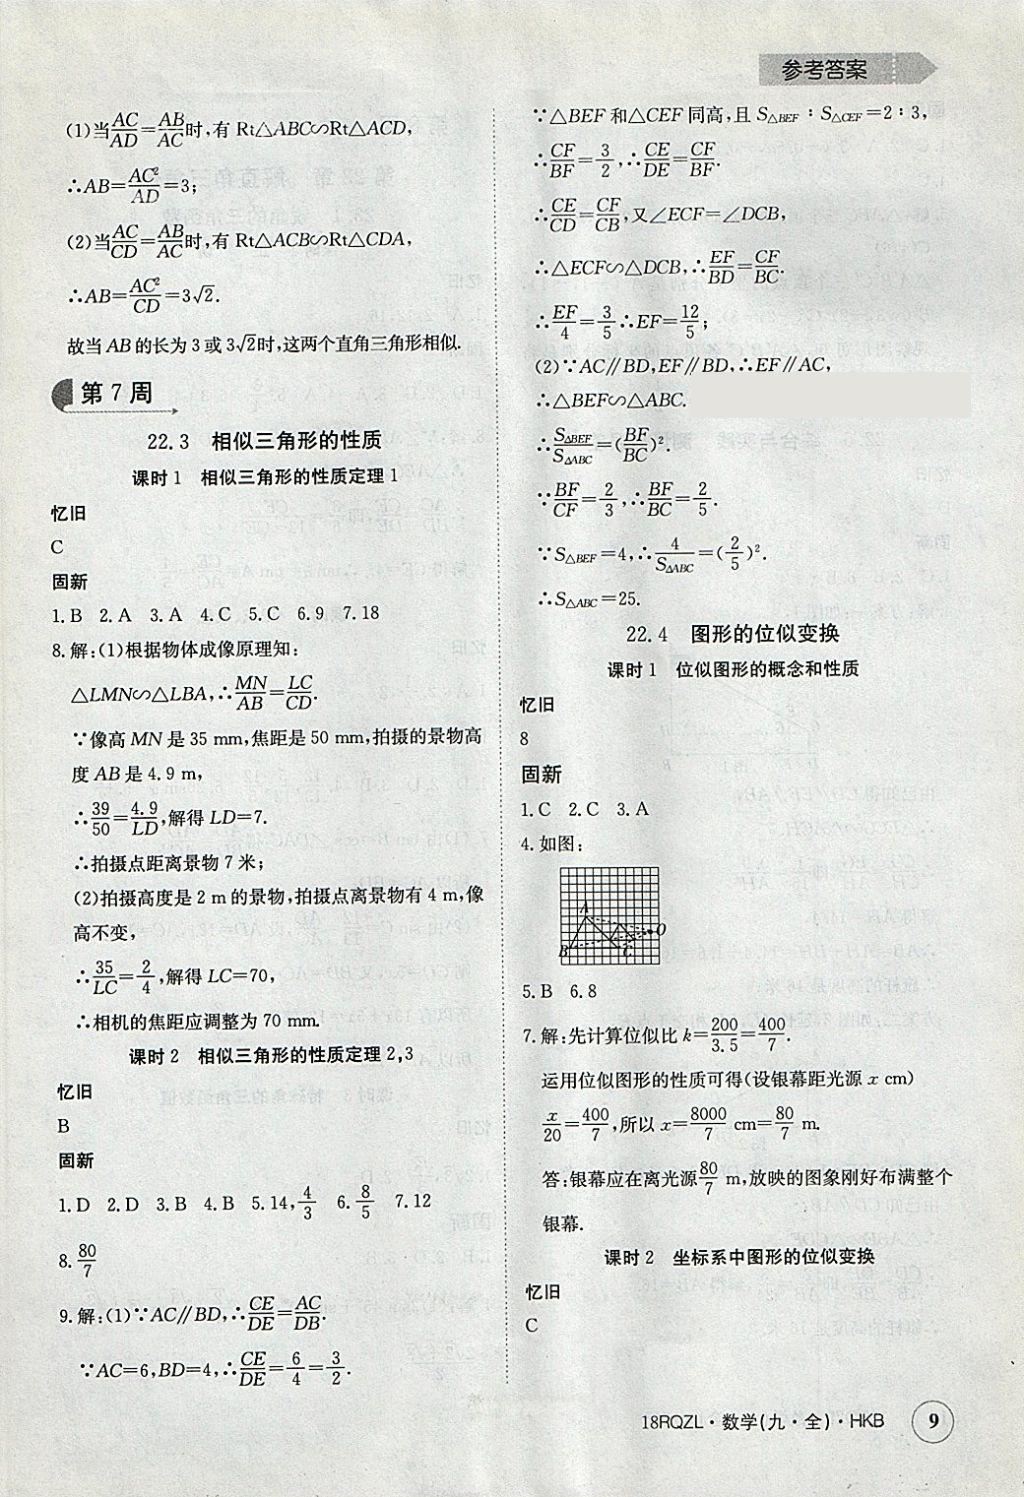 参考答案
(1)当AC/AD=AB/AC时,有 Rt△ABC∽Rt△ACD,
∴AB=AC²/AD=3;
(2)当AC/CD=AB/AC时,有 Rt△ACB∽Rt△CDA,
∴AB=AC²/CD=3√2.
故当 AB 的长为 3 或 3√2时,这两个直角三角形相似.
第 7 周
22.3 相似三角形的性质
课时 1 相似三角形的性质定理 1
忆旧
C
固新
1.B 2.A 3.A 4.C 5.C 6.9 7.18
8.解:(1)根据物体成像原理知:
△LMN∽△LBA,∴MN/AB=LC/CD.
∵像高 MN 是 35 mm,焦距是 50 mm,拍摄的景物高
度 AB 是 4.9 m,
∴39/50=4.9/LD,解得 LD=7.
∴拍摄点距离景物 7 米;
(2)拍摄高度是 2 m 的景物,拍摄点离景物有 4 m,像
高不变,
∴35/LC=2/4,解得 LC=70,
∴相机的焦距应调整为 70 mm.
课时 2 相似三角形的性质定理 2,3
忆旧
B
固新
1.D 2.D 3.B 4.B 5.14,4/3 6.8/5 7.12
8.80/7
9.解:(1)∵AC∥BD,∴CE/DE=AC/DB.
∵AC=6,BD=4,∴CE/DE=6/4=3/2.
∵△BEF 和△CEF 同高,且 S△BEF∶S△CEF=2∶3,
∴CF/BF=3/2,∴CE/DE=CF/BF.
∴CE/CD=CF/CB,又∠ECF=∠DCB,
∴△ECF∽△DCB,∴EF/BD=CF/BC.
∴EF/4=3/5∴EF=12/5;
(2)∵AC∥BD,EF∥BD,∴EF∥AC,
∴△BEF∽△ABC.
∴S△BEF/S△ABC=(BF/BC)².
∵BF/CF=2/3,∴BF/BC=2/5.
∵S△BEF=4,∴4/S△ABC=(2/5)².
∴S△ABC=25.
22.4 图形的位似变换
课时 1 位似图形的概念和性质
忆旧
8
固新
1.C 2.C 3.A
4.如图:
A
O
B
C
5.B 6.8
7.解:先计算位似比 k=200/3.5=400/7.
运用位似图形的性质可得(设银幕距光源 x cm)
x/20=400/7,所以 x=8000/7 cm=80/7 m.
答:银幕应在离光源80/7 m,放映的图象刚好布满整个
银幕.
课时 2 坐标系中图形的位似变换
忆旧
C
18RQZL·数学(九·全)·HKB 9